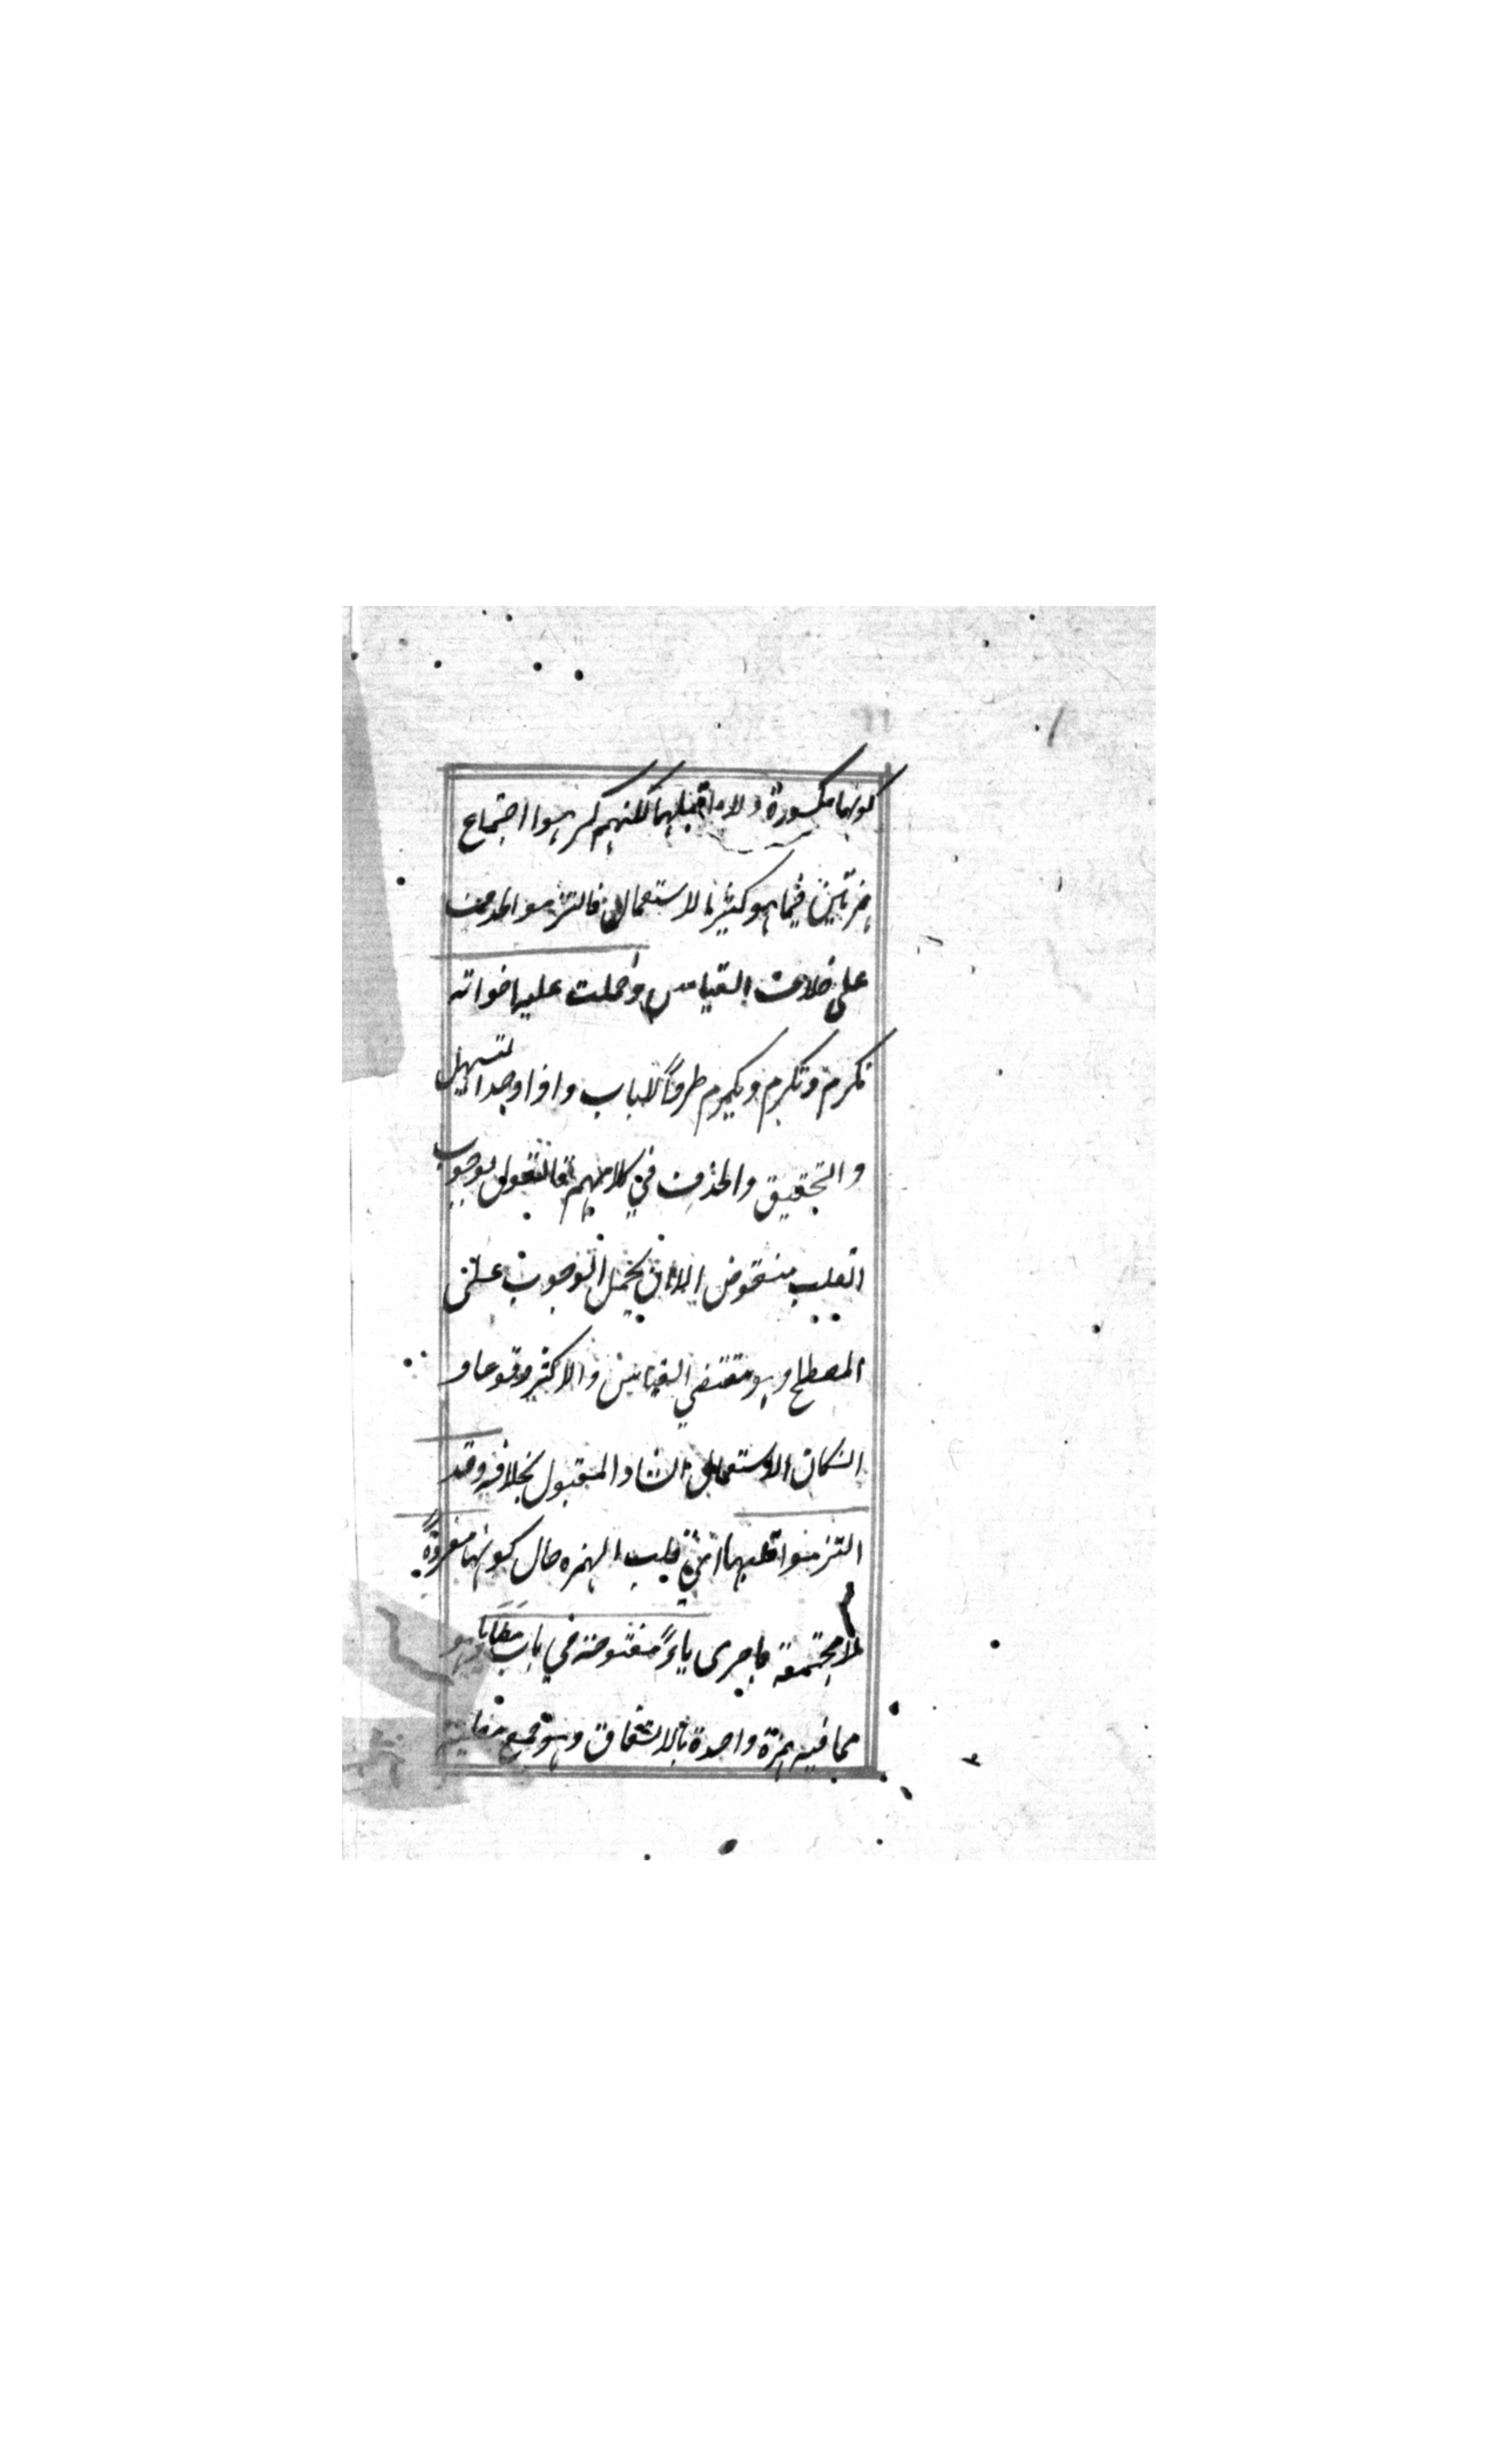 كونها مكسورة ولا ما قبلها لكنهم كرهوا اجتماع
همزتين فيما هو كثير الاستعمال فالتزموا الحذف
على خلاف القياس وحملت عليه اخواته
نكرم وتكرم ويكرم طردًا للباب واذا وجد التسهيل
والتحقيق والحذف في كلامهم فالقول بوجوب
القلب منقوض الا ان يحمل الوجوب على
المصطلح وهو مقتضي القياس والاكثر وقوعا و
ان كان الاستعمال الشاذ المقبول بخلافه وقد
التزموا قلبها اي قلب الهمزه حال كونها مفردةً
لا مجتمعة باخرى ياءً مفتوحة في باب مطايا وهو
مما فيه همزة واحدة بالاتفاق وهو جمع